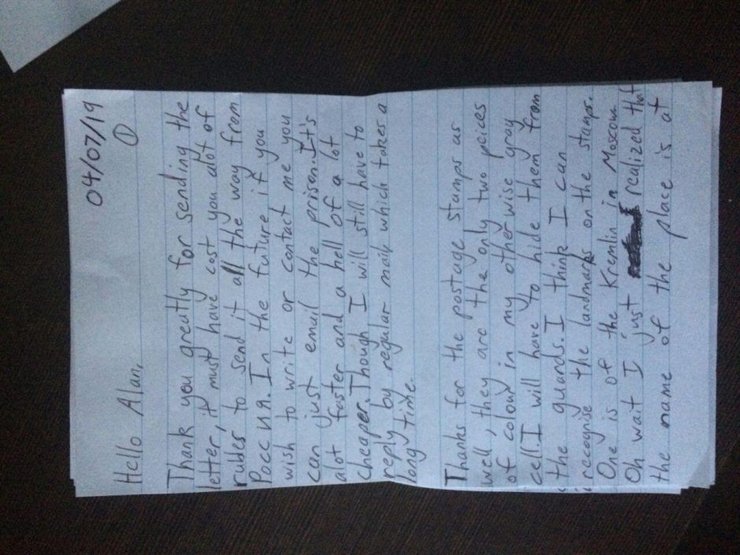 04/07/19
①
Hello Alan,
Thank you greatly for sending the
letter, it must have cost you alot of
rubles to send it all the way from
Росс ия. In the future if you
wish to write or contact me you
can just email the prison. It's
alot faster and a hell of a lot
cheaper. Though I will still have to
reply by regular mail which takes a
long time.
Thanks for the postage stamps as
well, they are the only two peices
of colour in my otherwise gray
cell. I will have to hide them from
the guards. I think I can
recegnise the landmarks on the stamps.
One is of the Kremlin in Moscow.
Oh wait I just realized that
the name of the place is at